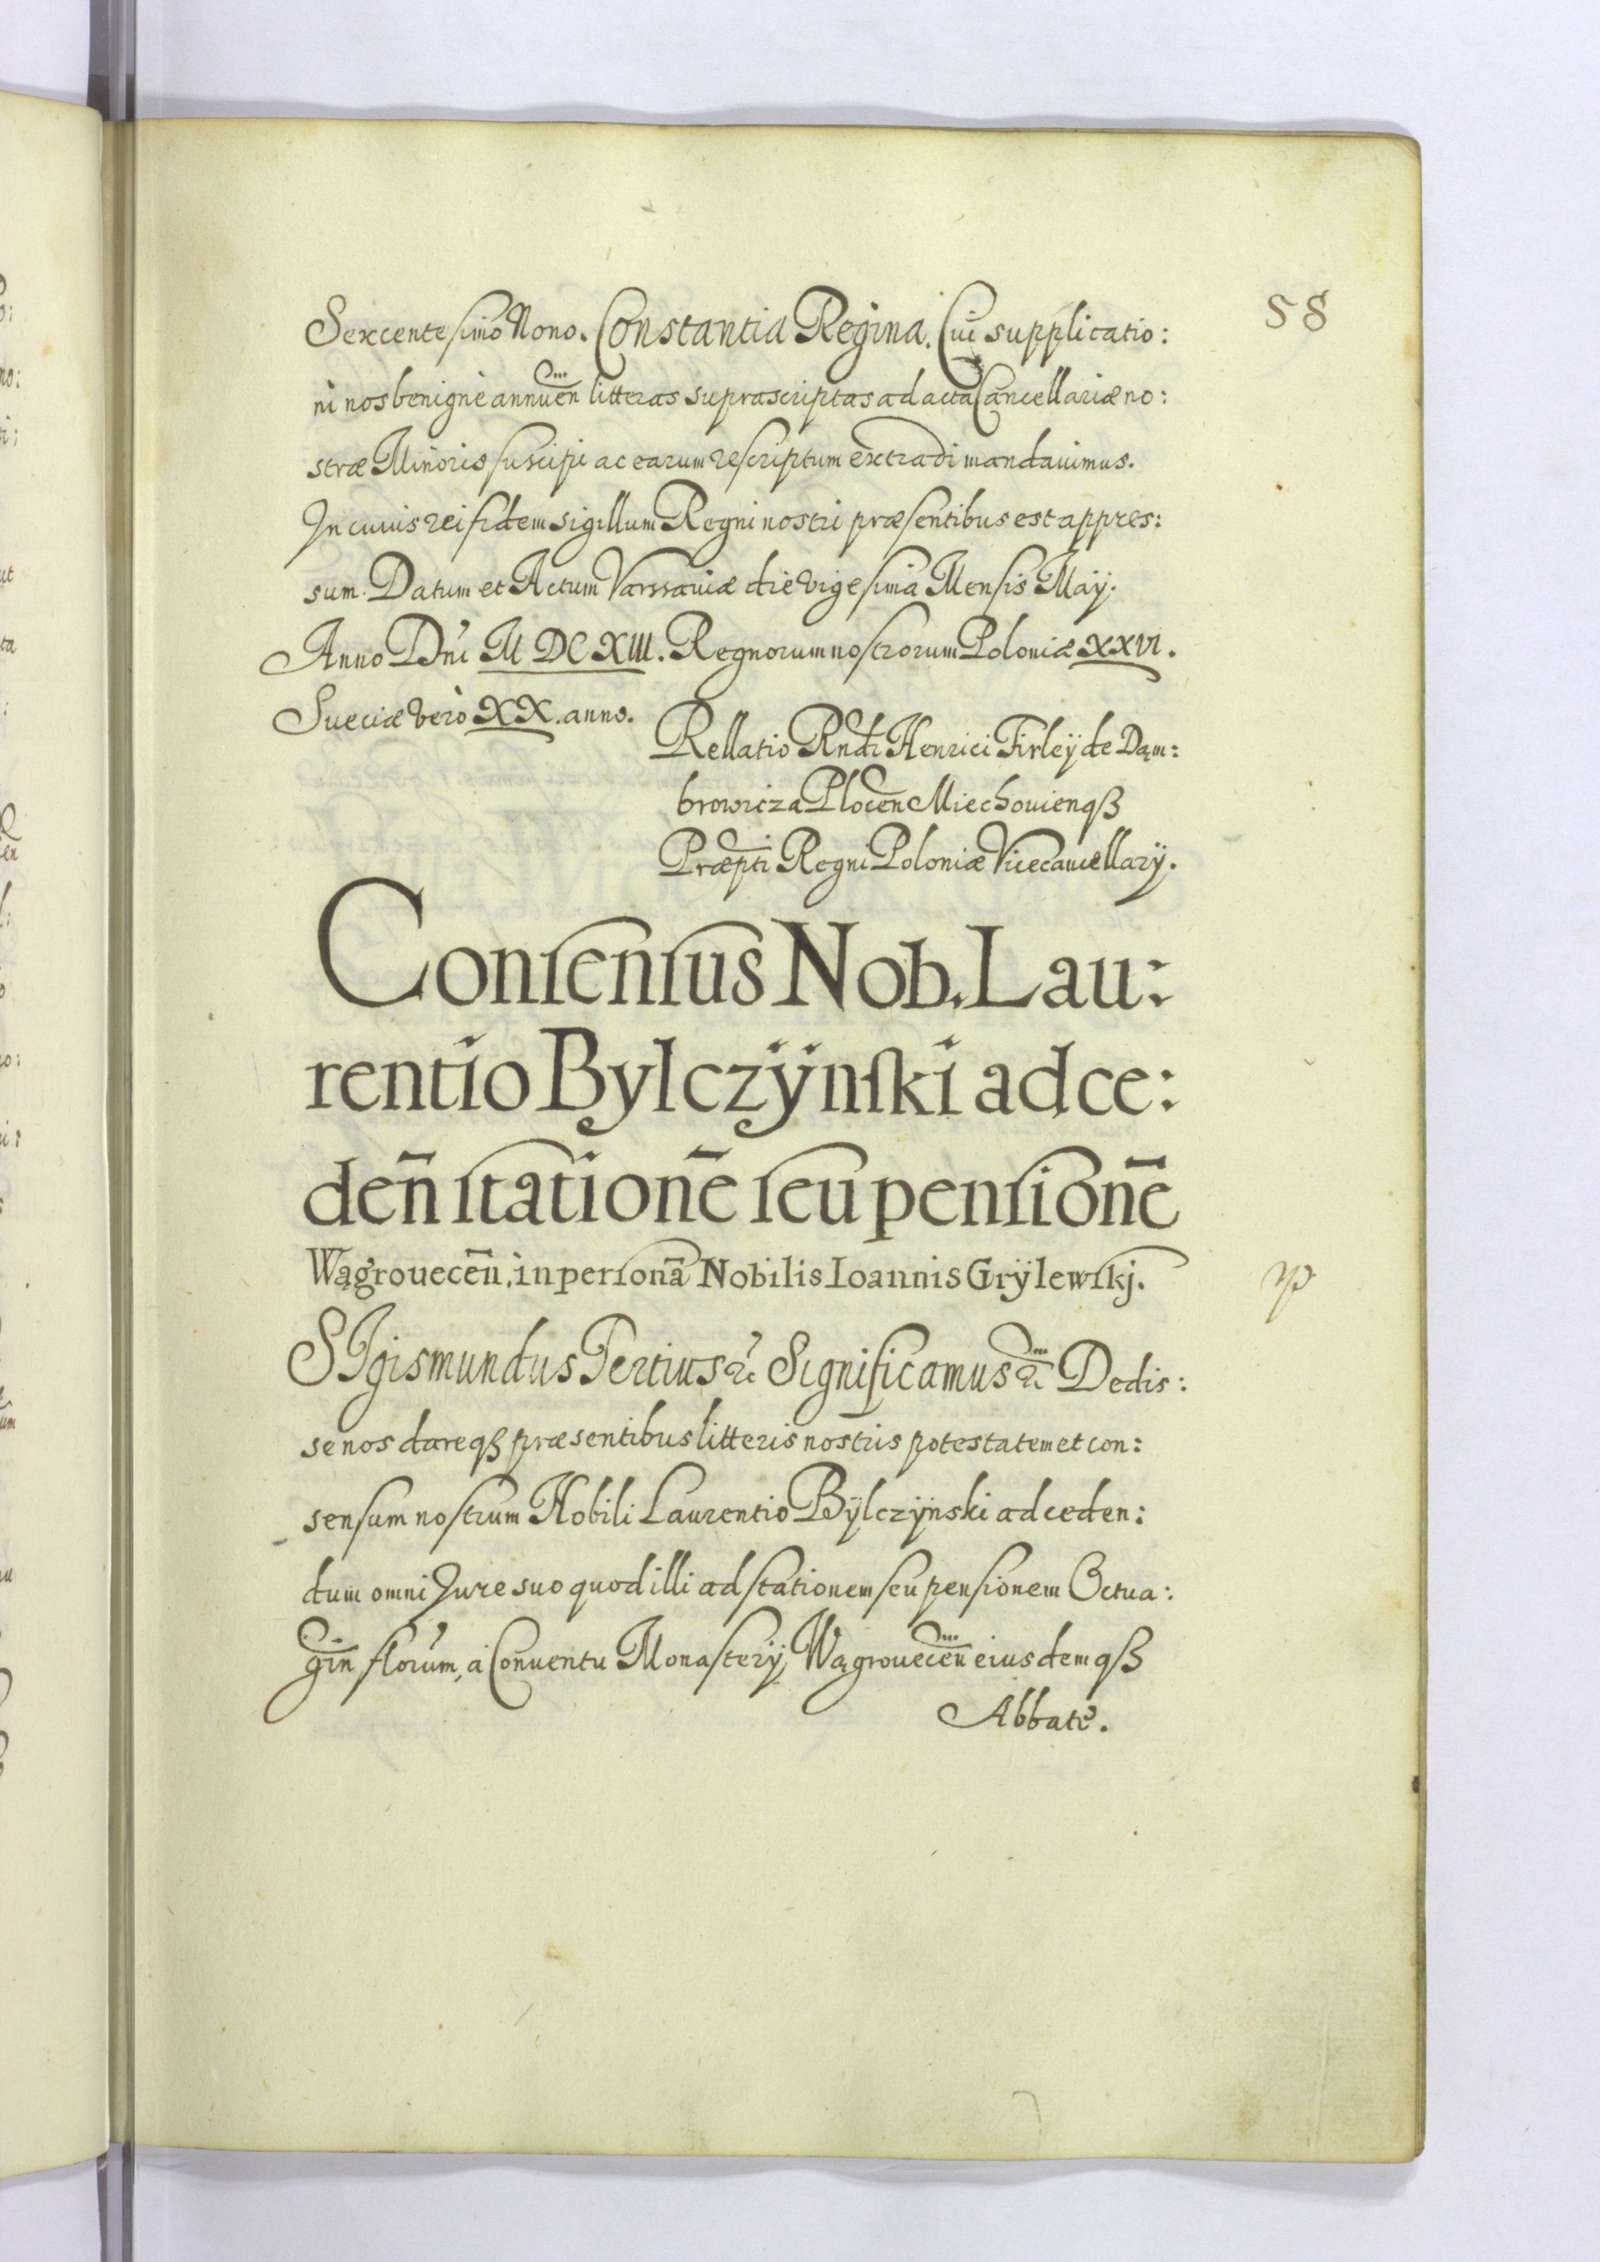 58
Sexcentesimo Nono. Constantia Regina. Cui supplicatio:
ni nos benignè annuen̄ litteras suprascriptas ad acta Cancellariæ no:
stræ Minoris suscipi ac earum rescriptum extradi mandauimus.
In cuius rei fidem sigillum Regni nostri præsentibus est appres:
sum. Datum et Actum Varssauiæ die vigesima Mensis Maÿ.
Anno Dni M DC XIII. Regnorum nostrorum Poloniæ XXVI.
Sueciæ verò XX. anno.
Rellatio Rndi Henrici Firleÿ de Dąm:
browicza Plocen̄ Miechouienqß
Præpti Regni Poloniæ Vicecancellarÿ.
Consensus Nob. Lau:
rentio Bylczÿnski ad ce:
den̄ stationē seu pensionē
Wągrouecen̄. in personā Nobilis Ioannis Grÿlewskj.
SIgismundus Tertius &c Significamus &c Dedis:
se nos dareqß præsentibus litteris nostris potestatem et con:
sensum nostrum Nobili Laurentio Bÿlczÿnski ad ceden:
dum omni Jure suo quod illi ad stationem seu pensionem Octua:
gin̄ florum, à Conuentu Monasterÿ Wągrouecen̄ eiusdemqß
Abbate.